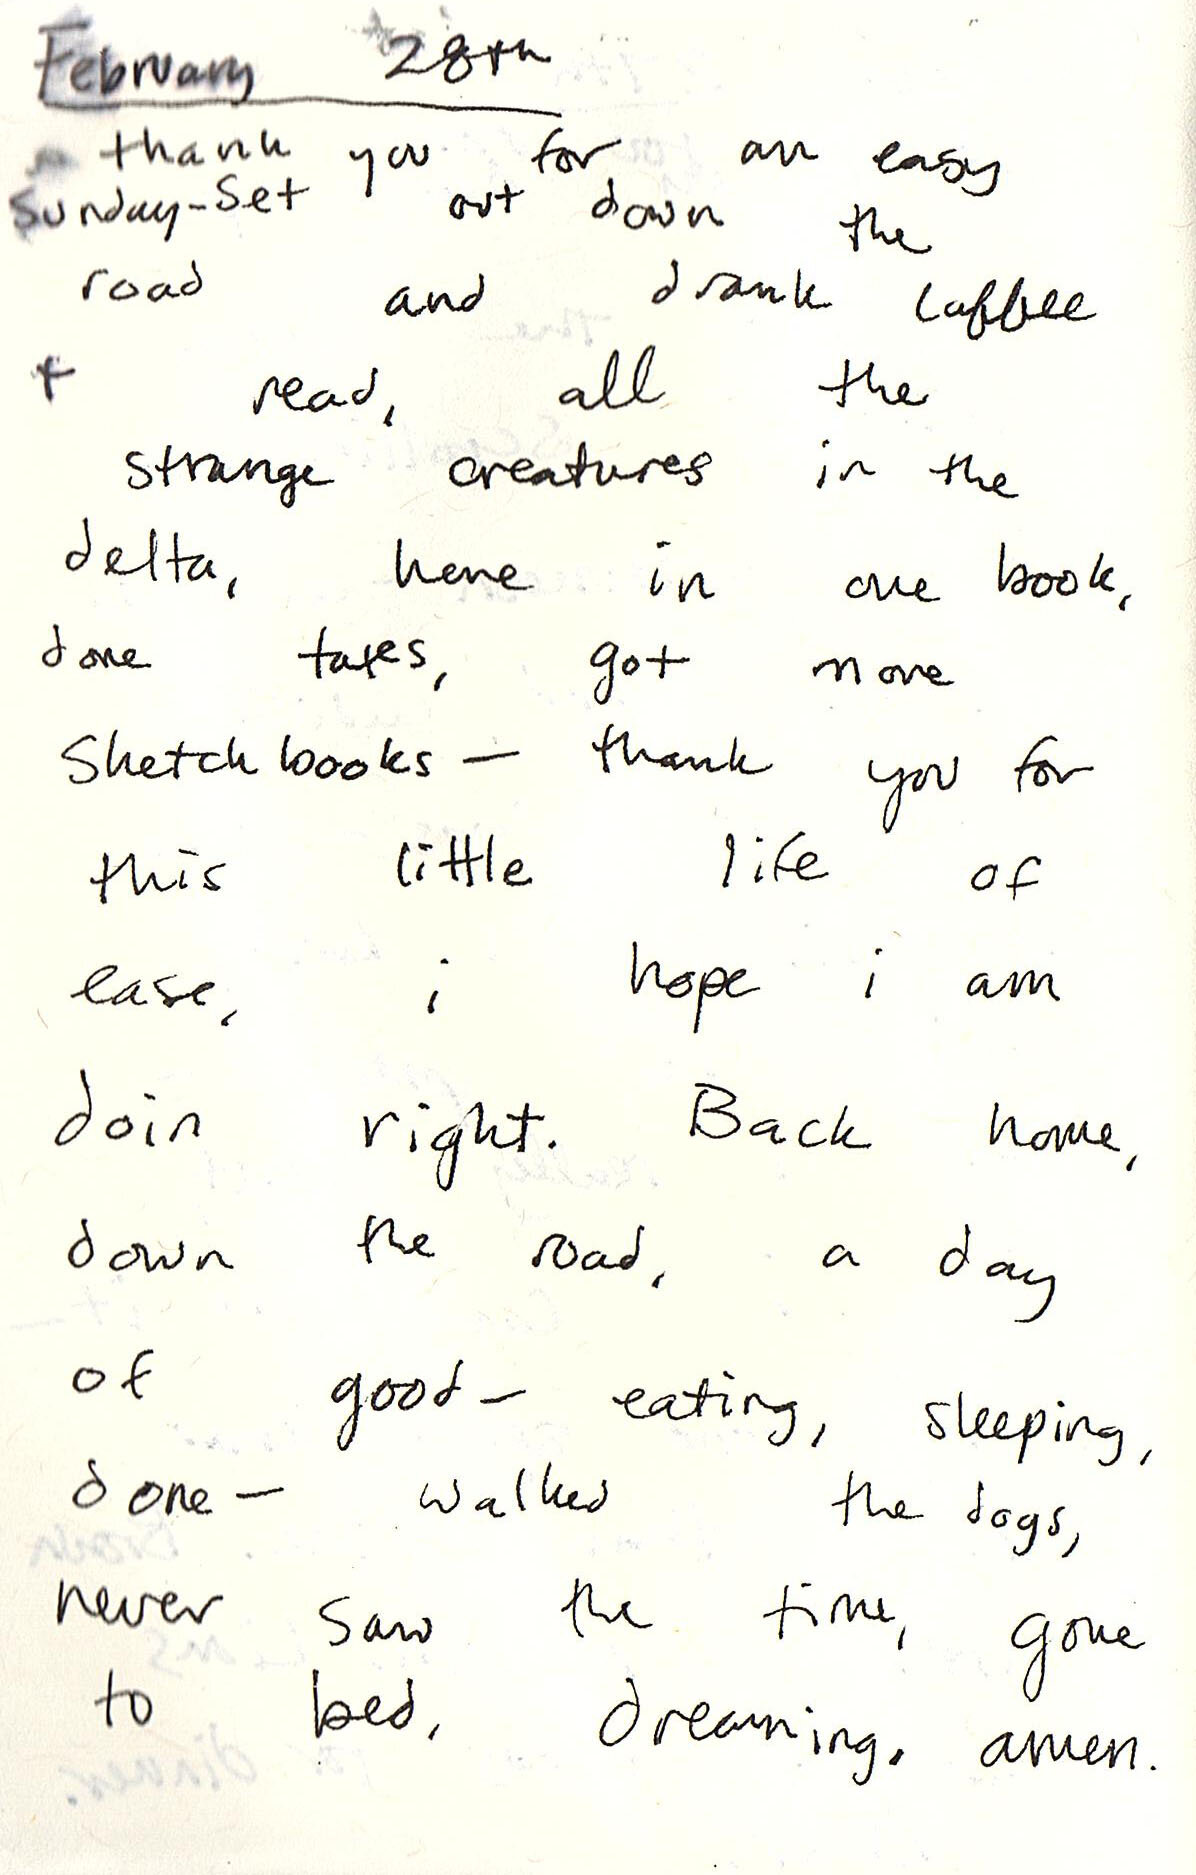 February 28th
thank you for an easy
Sunday-Set out down the
road and drank coffee
+ read, all the
strange creatures in the
delta, here in one book,
done taxes, got more
Sketchbooks — thank you for
this little life of
ease, i hope i am
doin right. Back home,
down the road, a day
of good — eating, sleeping,
done — walked the dogs,
never saw the time, gone
to bed, dreaming, amen.